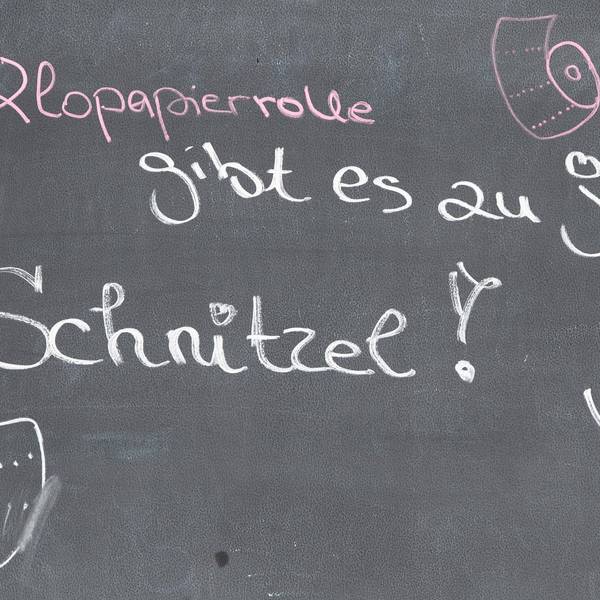 Klopapierrolle
gibt es zu
Schnitzel!